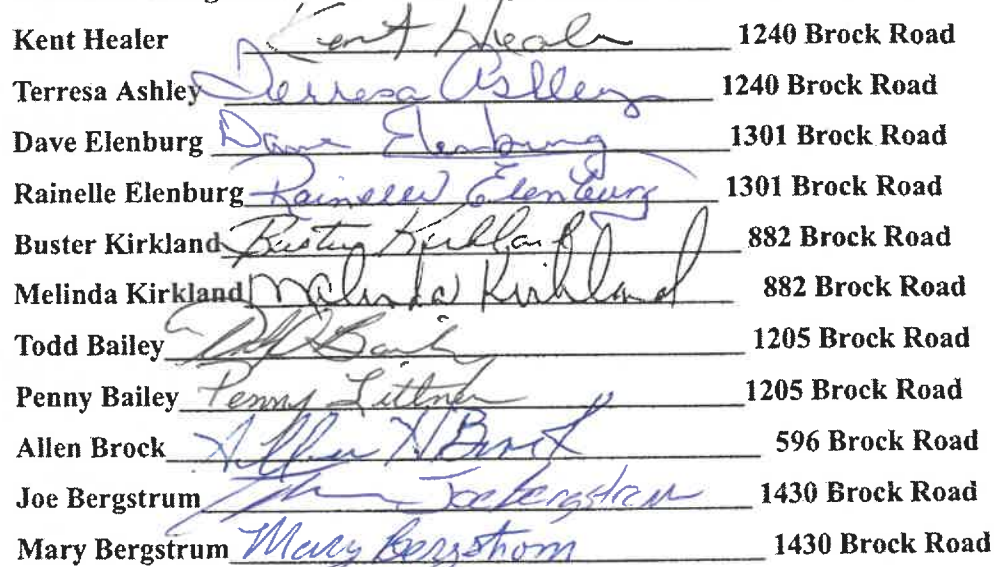 Kent Healer Kent Healer 1240 Brock Road
Terresa Ashley Terresa Ashley 1240 Brock Road
Dave Elenburg Dave Elenburg 1301 Brock Road
Rainelle Elenburg Rainelle Elenburg 1301 Brock Road
Buster Kirkland Buster Kirkland 882 Brock Road
Melinda Kirkland Melinda Kirkland 882 Brock Road
Todd Bailey Bailey 1205 Brock Road
Penny Bailey Penny Littner 1205 Brock Road
Allen Brock Allen Brock 596 Brock Road
Joe Bergstrum Joe Bergstrum 1430 Brock Road
Mary Bergstrum Mary Bergstrom 1430 Brock Road